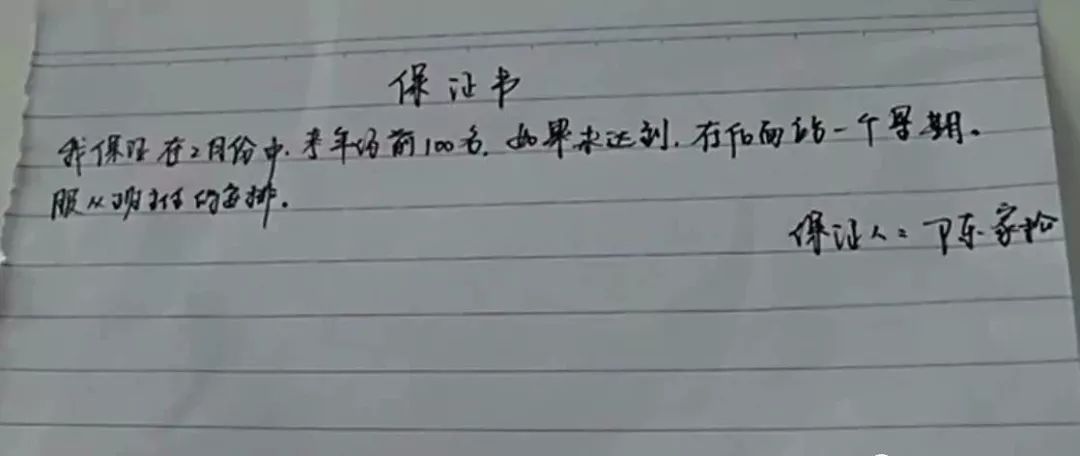 保证书
我保证在2月份中.考年级前100名.如果未达到.在后面站一个星期。
服从班主任的安排.
保证人:陈家松